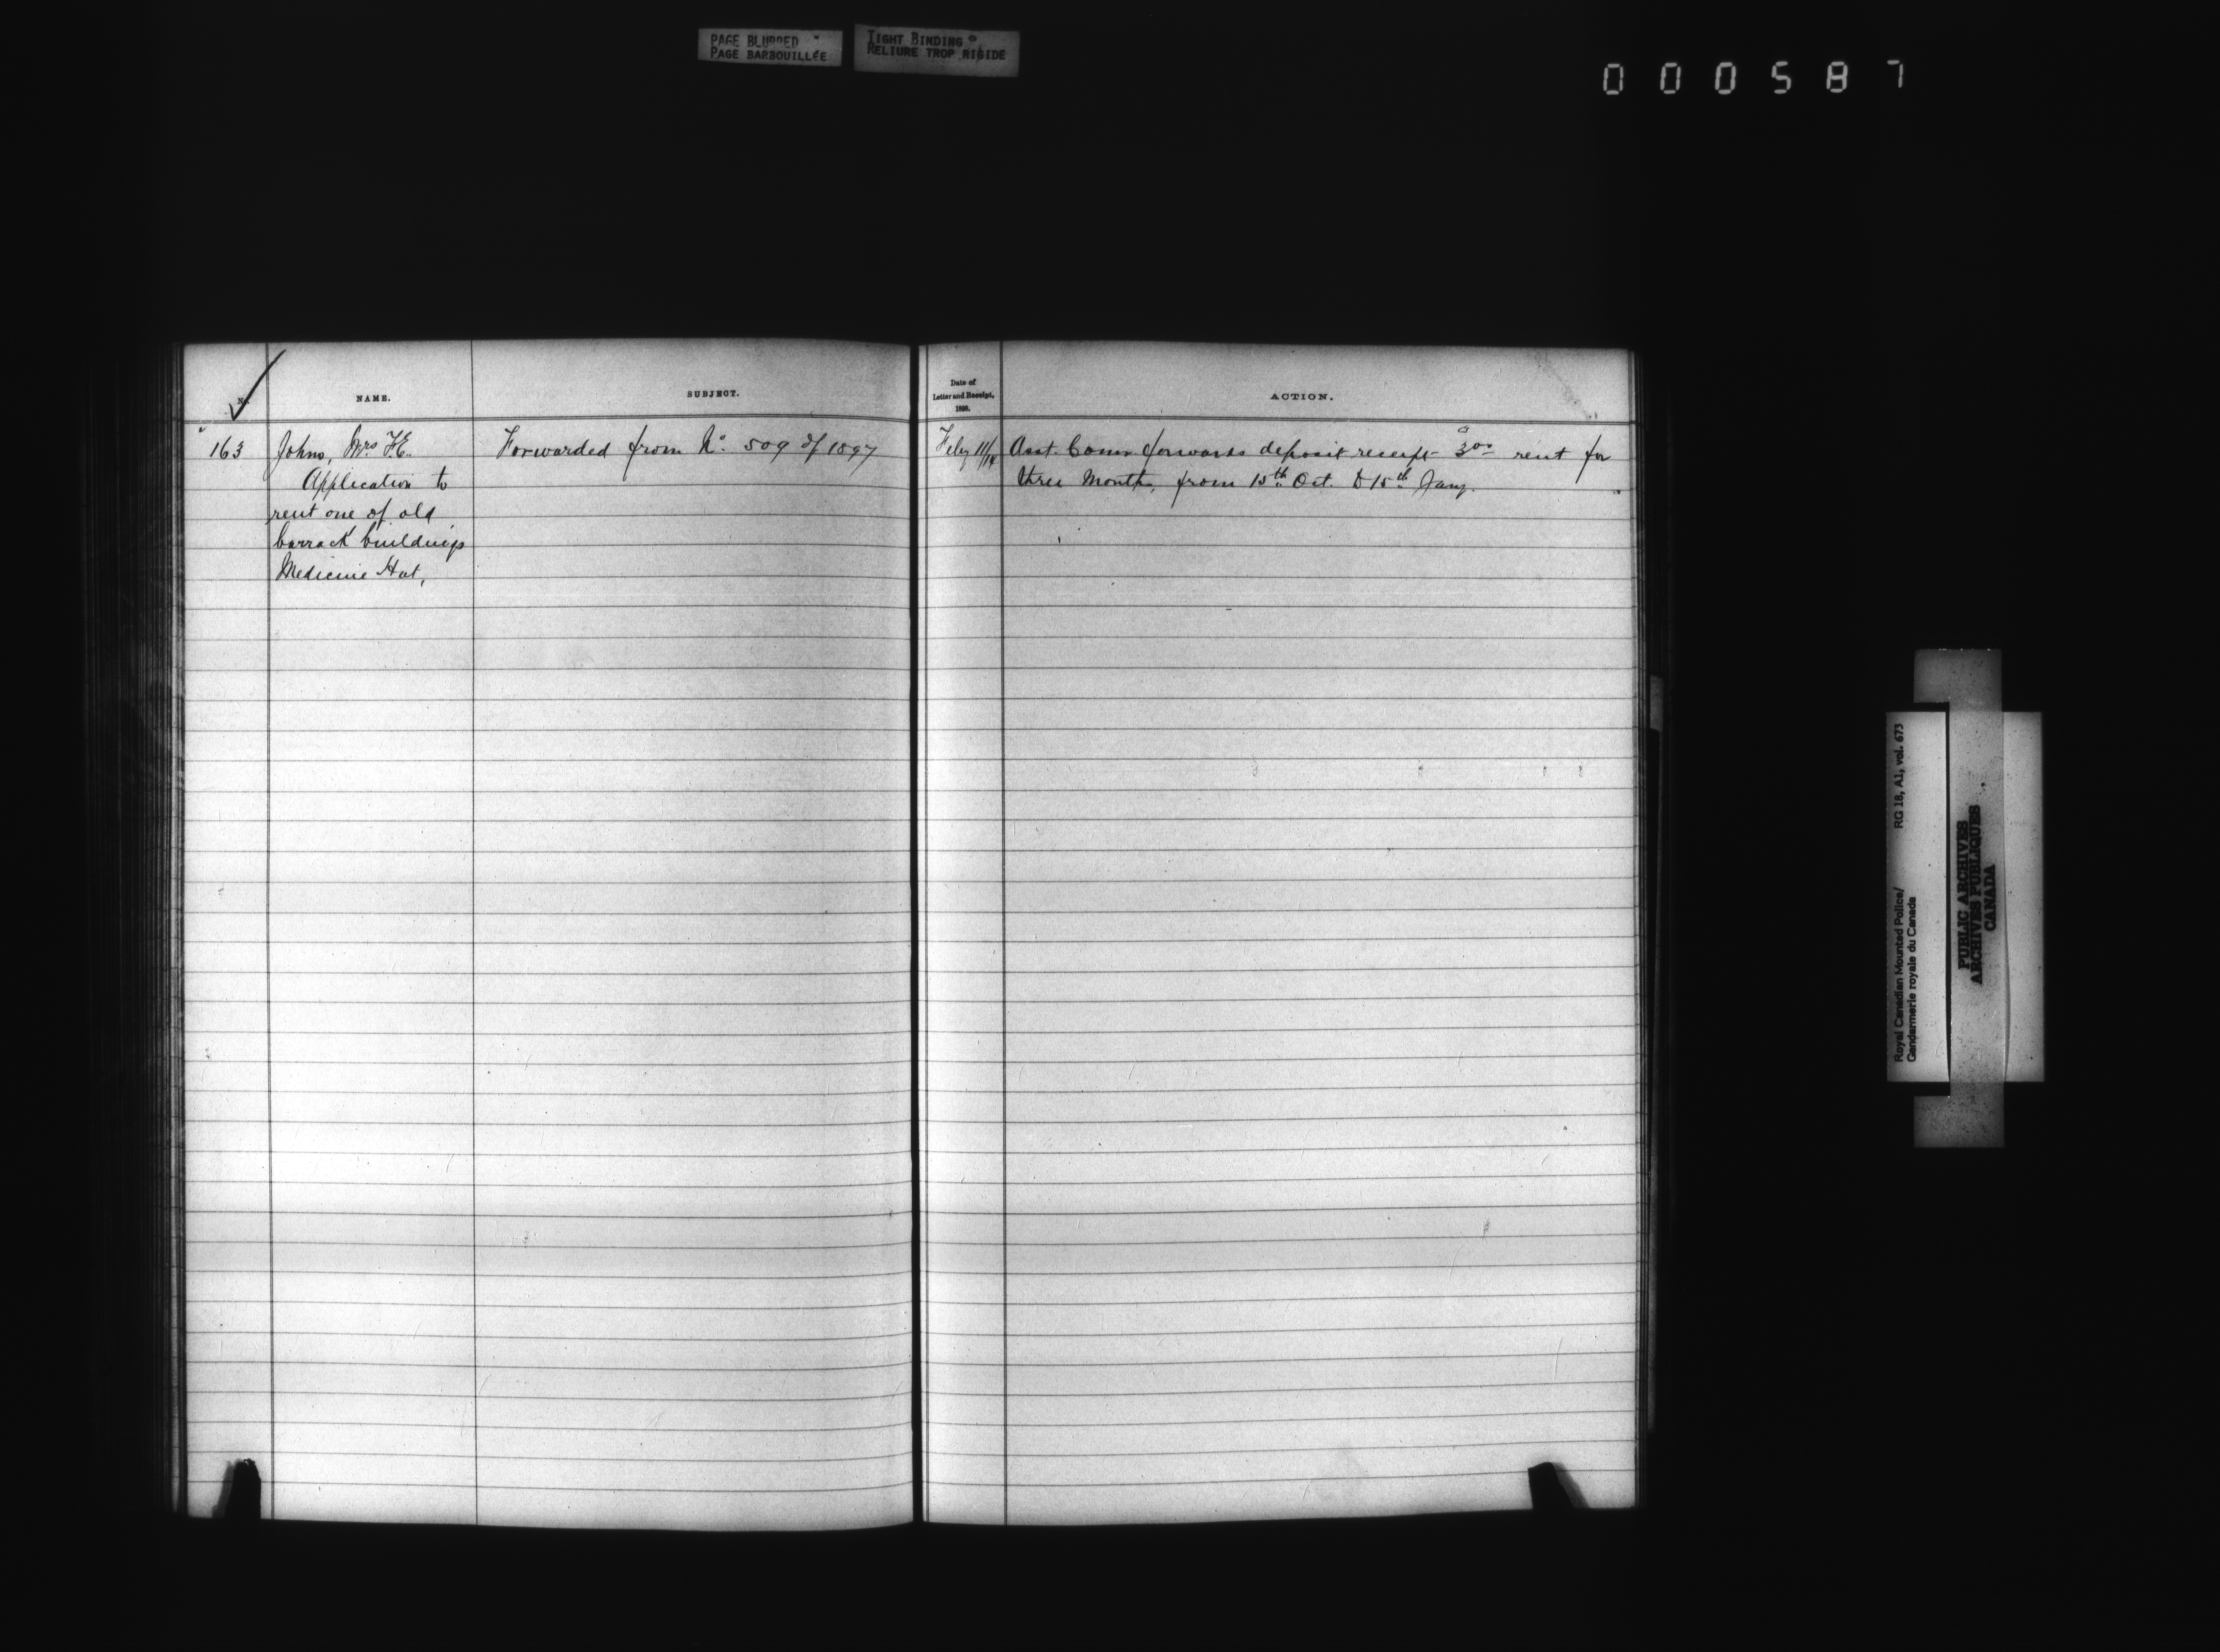 PAGE BLURRED
PAGE BARBOUILLÉE
TIGHT BINDING
RELIURE TROP RIGIDE
000587
No.
NAME.
SUBJECT.
Date of
Letter and Receipt,
1898.
ACTION.
163
Johns, Mrs. F.E.
Application to
rent one of old
barrack buildings
Medicine Hat,
Forwarded from No. 509 of 1897
Feby 11/14
Asst. Comr. forwards deposit receipt 3.00 rent for
three Months, from 15th Oct. to 15th Jany.
Royal Canadian Mounted Police/ RG 18, A1, vol. 673
Gendarmerie royale du Canada
PUBLIC ARCHIVES
ARCHIVES PUBLIQUES
CANADA